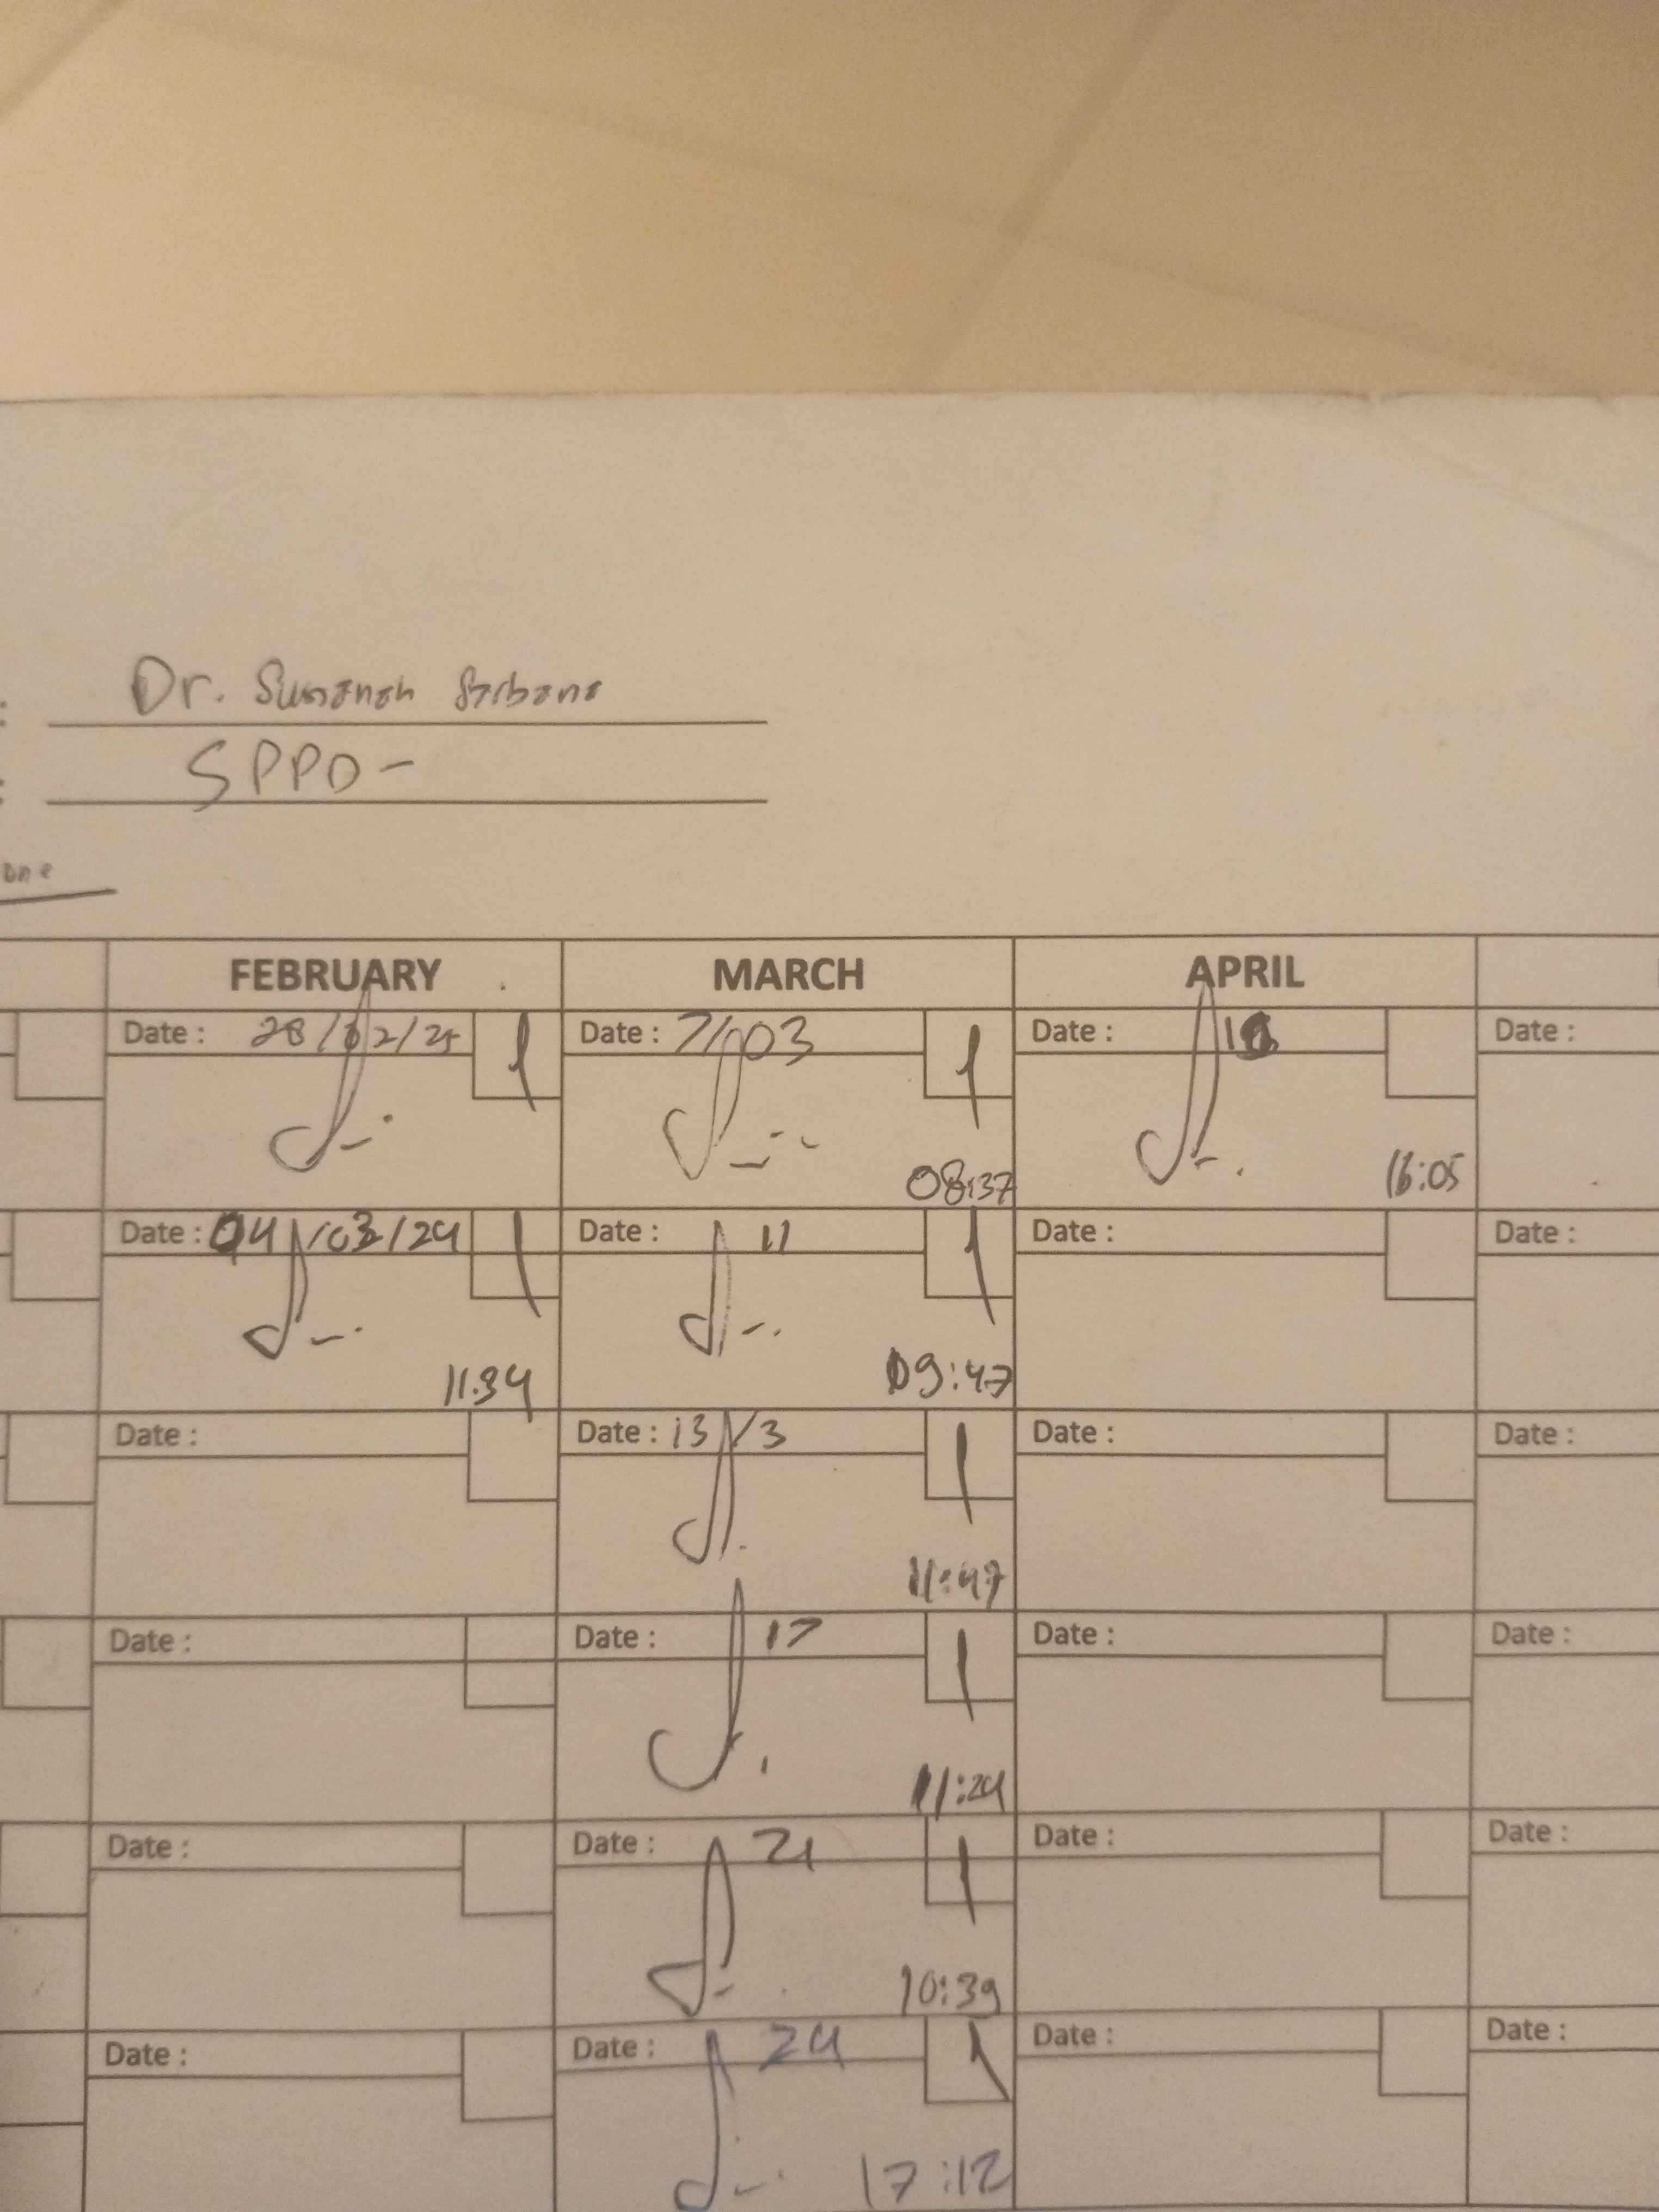 : Dr.
: SPPD-
FEBRUARY MARCH APRIL
Date : 28/02/25 1 Date : 7/03 1 Date : Date :
08:37 16:05
Date : 04/03/24 1 Date : 11 1 Date : Date :
11.34 09:47
Date : Date : 13/3 1 Date : Date :
11:47
Date : Date : 17 1 Date : Date :
11:24
Date : Date : 21 1 Date : Date :
10:39
Date : Date : 24 1 Date : Date :
17:12